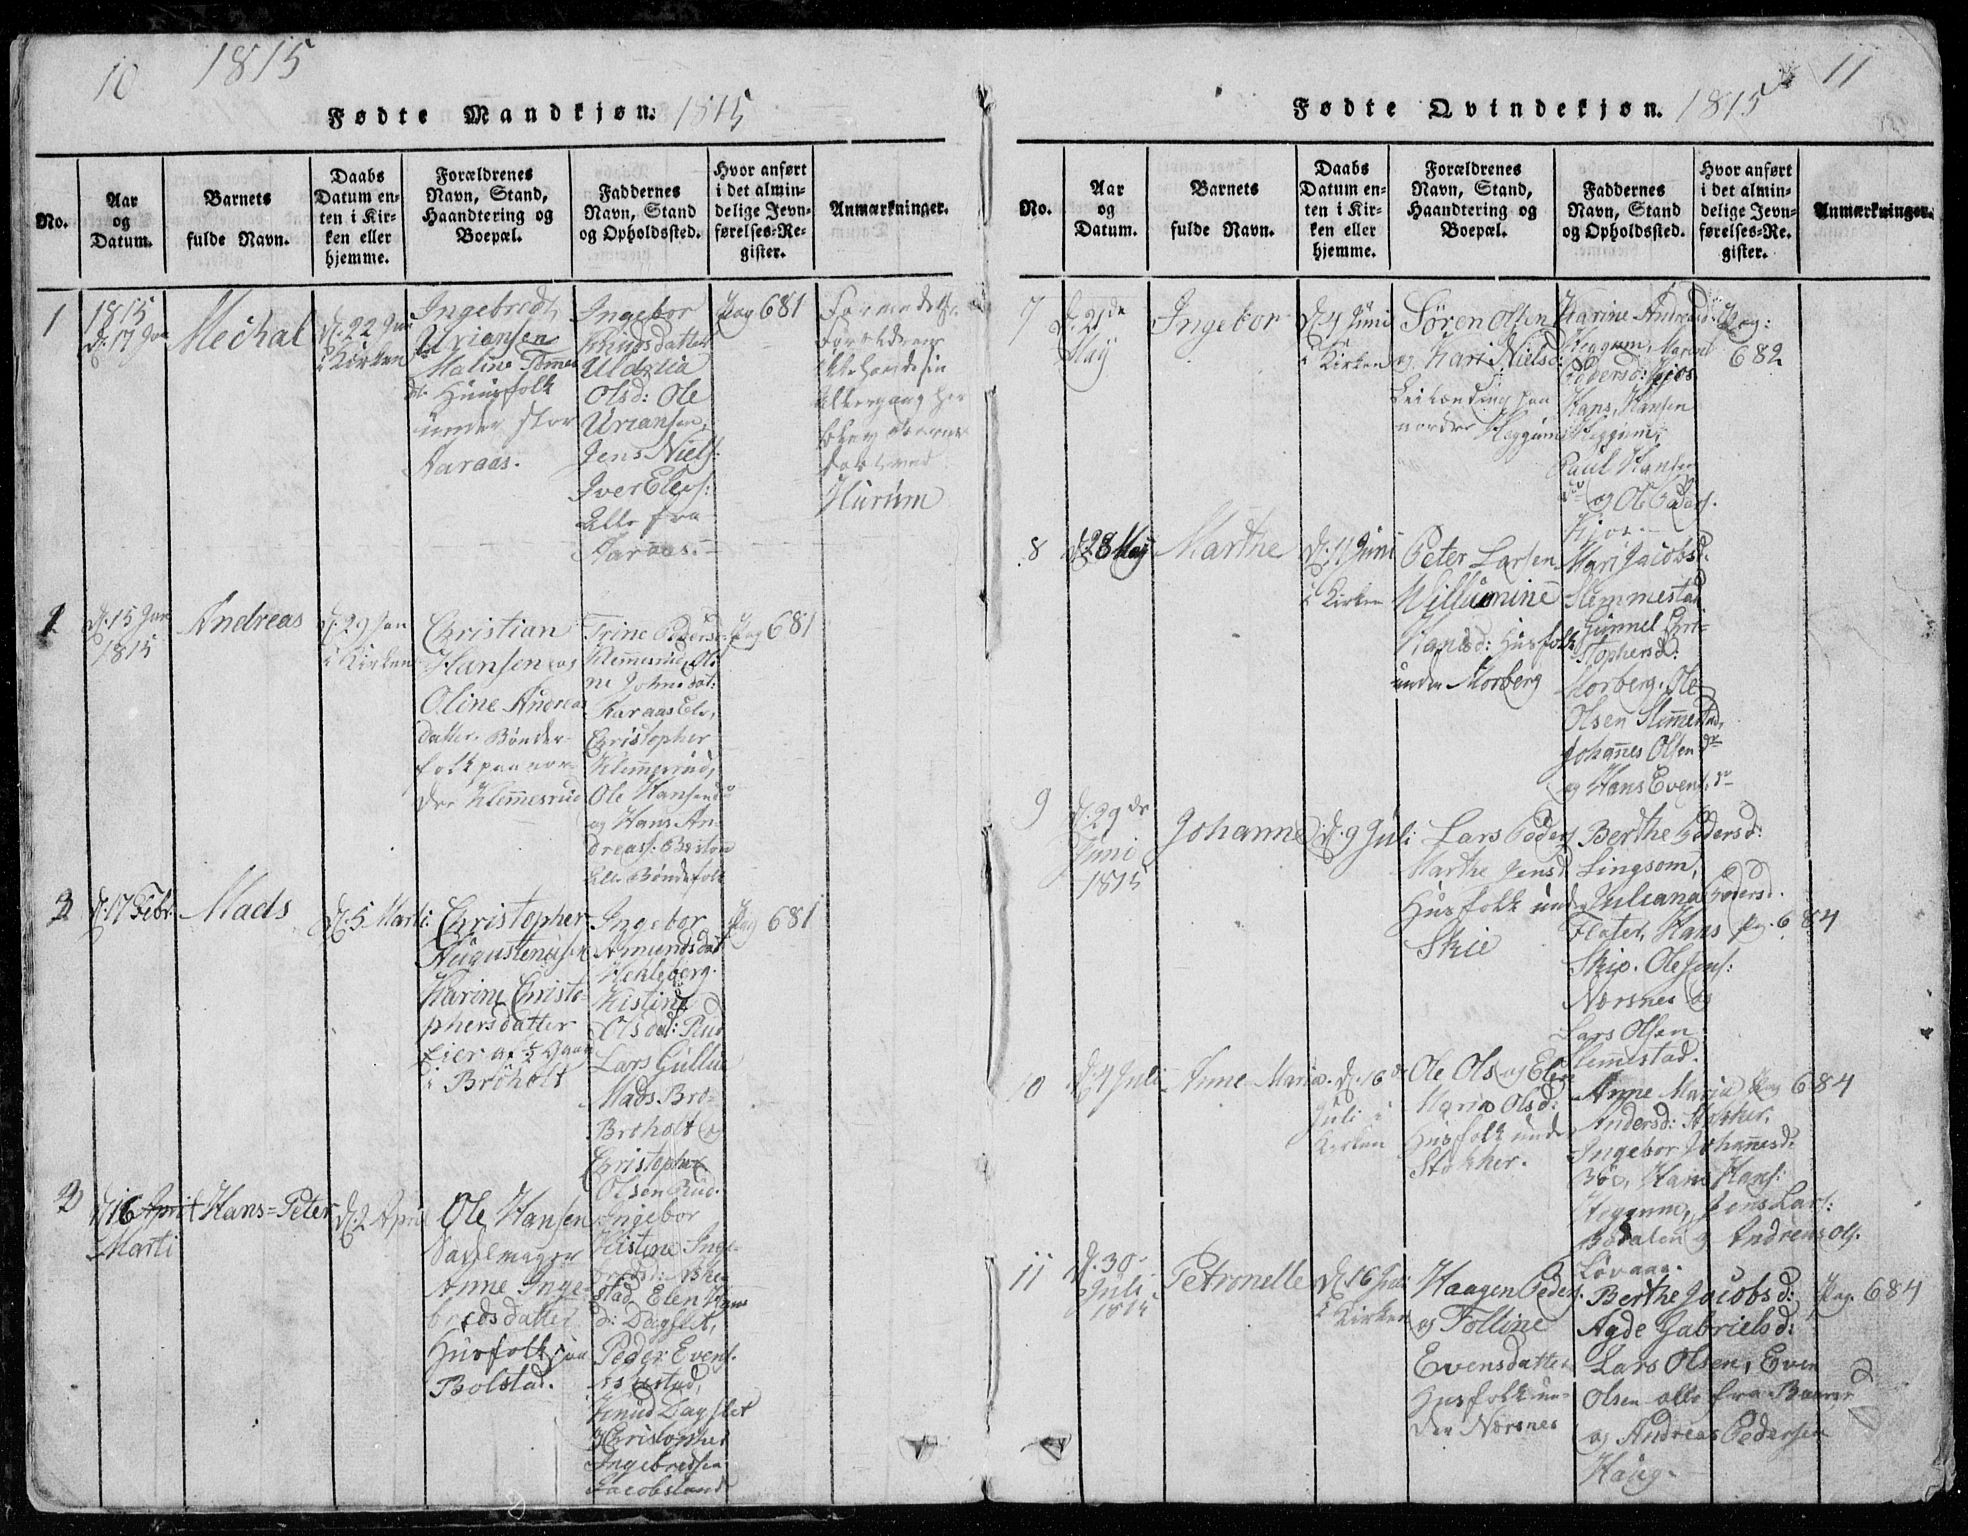 10 1815
Fødte Mandkjøn. 1815
No.
Aar
og
Datum.
Barnets
fulde Navn.
Daabs
Datum en-
ten i Kir-
ken eller
hjemme.
Forældrenes
Navn, Stand,
Haandtering og
Boepæl.
Faddernes
Navn, Stand
og Opholdssted.
Hvor anført
i det almin-
delige Jevn-
førelses-Re-
gister.
Anmærkninger.
1
1815
d. 17 Jan
Mechal
d. 22 Jan
i Kirken
Ingebredt
Uriansen
Maline Tomes
dt. Huusfolk
under stor
Aaraas.
Ingebor
Knudsdatter
Olsd: Ole
Uriansen,
Jens Niels:
Iver Elefs:
Alle fra
Aaraas.
Pag 681
Hurum
d. 15 Jan
1815
Andreas
d. 29 Jan
i Kirken
Christian
Hansen og
Oline Andreas
datter. Bønder-
folk paa nor-
dre Klemmesrud
Trine Pedersd:
Klemmesrud, Oli
ne Johnsdat:
Aaraas
Christopher
Klemmesrud,
Ole Hansen do
og Hans An-
dreass.
Alle Bøndefolk
Pag 681
d. 17 Febr.
Mads
d. 5 Marti:
Christopher
Augustenusen
Karine Christo-
phersdatter
Eier af ½ Gaard
i Bröholt
Ingebor
Amundsdat
Hekleberg.
Kistine
Olsdat: Rud
Lars Gullu
Mads Bro-
Broholt og
Christopher
Olsen Rud.
Pag 681
d. 16 April
Marti
Hans-Peter
d. 2 April
Ole Hansen
Sadelmager
Anne Inge-
bredsdatter
Husfolk paa
Bolstad.
Ingebor
Kistine Inge-
bredsd:
stad, Elen
d: Dagslet,
Peder Evens.
Knud Dagslet
og Christopher
Ingebredsen
Jacobsland
11
Fødte Qvindekjøn. 1815
No.
Aar
og
Datum.
Barnets
fulde Navn.
Daabs
Datum en-
ten i Kir-
ken eller
hjemme.
Forældrenes
Navn, Stand,
Haandtering og
Boepæl.
Faddernes
Navn, Stand
og Opholdssted.
Hvor anført
i det almin-
delige Jevn-
førelses-Re-
gister.
Anmærkninger.
7
d. 21de
May
Ingebor
d. 4 Juni
i Kirken
Søren Olsen
og Kari Nielsd:
Leilænding paa
nordre Heggum
Karine Andreasd:
Heggum, Maren
Pedersd: Kjos
Hans Hansen
Heggum,
Paul Hansen
do og Ole Peders.
Kjos.
Pag:
682
8
d. 28 May
Marthe
d. 11 Juni
i Kirken
Peter Larsen
Willumine
Hansd: Husfolk
under Morberg
Mari Jacobsd.
Slemmestad
Gunnel Chri-
stophersd:
Morberg, Ole
Olsen Slemmestad,
Johannes Olsen do
og Hans Evens. do
9
d. 29de
Juni
1815
Johanne
d. 9 Juli
Lars Peders
Marthe Jensd
Husfolk under
Skie
Berthe Pedersd:
Lingsom,
Juliana Pedersd.
Flater, Hans
Skie. Ole Jens:
Nærsnes og
Lars Olsen
Slemmestad.
Pag. 684
10
d. 4 Juli
Anne Maria.
d. 16de
Juli i
Kirken
Ole Ols og Elen
Maria Olsd:
Husfolk under
Stokker.
Anne Maria
Andersd: Stokker,
Ingebor Johannesd.
Böe, Hans Hans:
Heggum, Jens Lars:
Bödalen og Andreas Ols.
Løvaas.
Pag 684
11
d. 30
Juli
Petronelle
d. 16 Juli
i Kirken
Haagen Peders.
og Folline
Evensdatter
Husfolk un-
der Nærsnes
Berthe Jacobsd:
Agde Gabrielsd:
Lars Olsen, Even
Olsen alle fra
og Andreas Pedersen
Haug.
Pag. 684